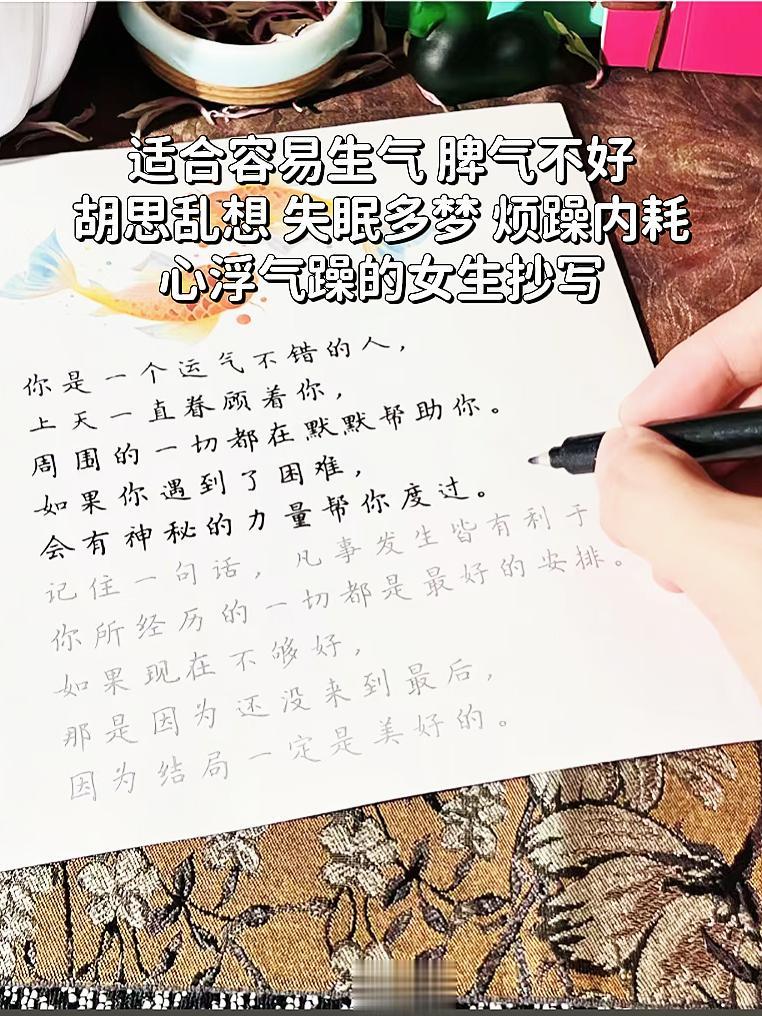 适合容易生气 脾气不好
胡思乱想 失眠多梦 烦躁内耗
心浮气躁的女生抄写
你是一个运气不错的人，
上天一直眷顾着你，
周围的一切都在默默帮助你。
如果你遇到了困难，
会有神秘的力量帮你度过。
记住一句话，凡事发生皆有利于
你所经历的一切都是最好的安排。
如果现在不够好，
那是因为还没来到最后，
因为结局一定是美好的。